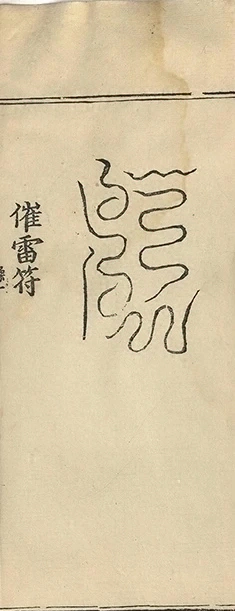 催雷符